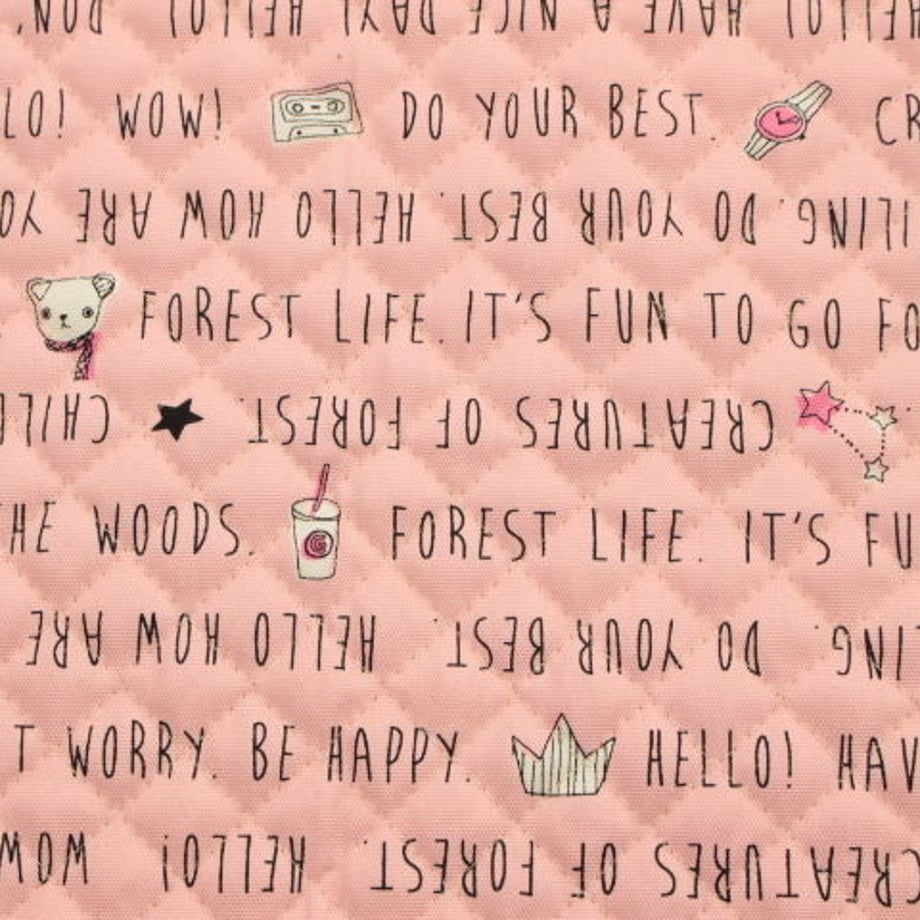 HELLO! HAVE A NICE DAY! HELLO! DON'
LO! WOW! DO YOUR BEST. CR
ILING. DO YOUR BEST. HELLO HOW ARE YO
FOREST LIFE. IT'S FUN TO GO FO
CREATURES OF FOREST.
HE WOODS. FOREST LIFE. IT'S FU
G
ING. DO YOUR BEST. HELLO HOW ARE
T WORRY. BE HAPPY. HELLO! HAV
CREATURES OF FOREST. HELLO! WOW